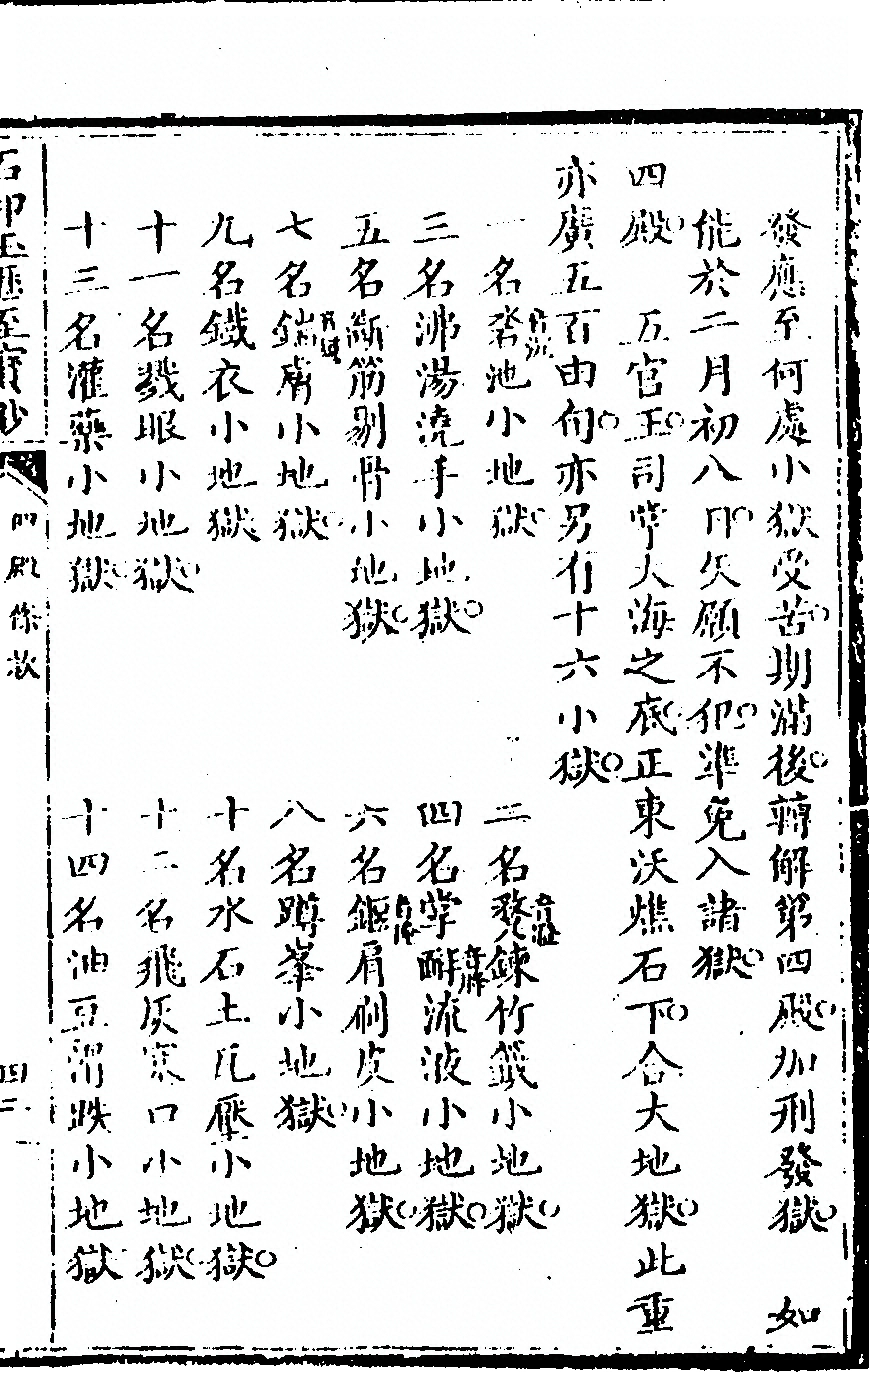 發應至何處小獄受苦期滿後轉解第四殿加刑發獄　如
能於二月初八日矢願不犯準免入諸獄
四殿　五官王司掌大海之底正東沃燋石下合大地獄此重
亦廣五百由旬亦另有十六小獄
一名池小地獄　二名鍊竹籤小地獄
三名沸湯澆手小地獄　四名掌流液小地獄
五名斷筋剔骨小地獄　六名肩刷皮小地獄
七名鍴膚小地獄　八名蹲峯小地獄
九名鐵衣小地獄　十名水石土瓦壓小地獄
十一名戮眼小地獄　十二名飛灰塞口小地獄
十三名灌藥小地獄　十四名油豆滑跌小地獄
石印玉歷至寶鈔　四殿條款　四二